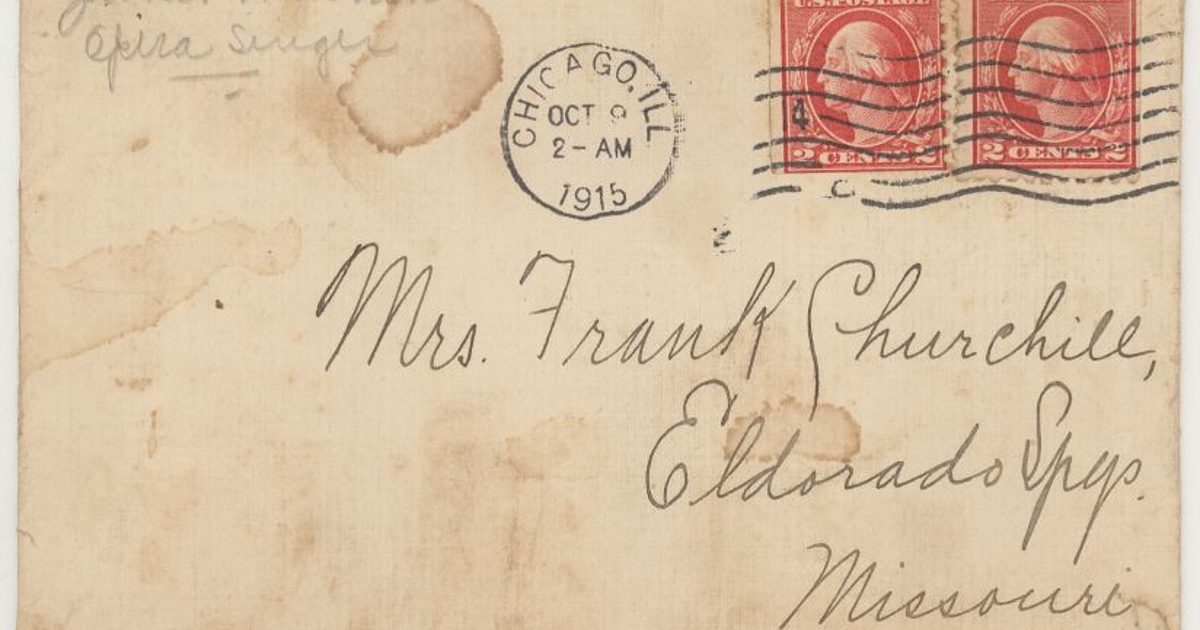 Opera Singer
U.S. POSTAGE
CHICAGO, ILL
OCT 9
2-AM
1915
4
2 CENTS 2
2 CENTS 2
Mrs. Frank Churchill,
Eldorado Spgs.
Missouri